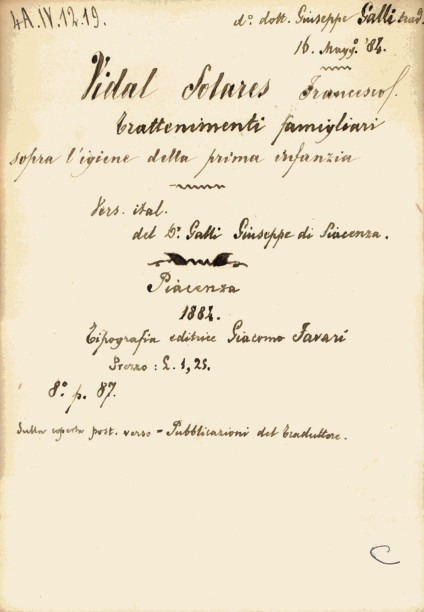 4A.IV.12.19.
d.º dott. Giuseppe Galli trad.
16. Magg.º '84.
Vidal Solares Francesco
Trattenimenti famigliari
sopra l'igiene della prima infanzia
Vers. ital.
del D.r Galli Giuseppe di Piacenza.
Piacenza
1884.
Tipografia editrice Giacomo Favari
Prezzo: £. 1,25.
8.º p. 87.
Sulla coperta post. verso = Pubblicazioni del traduttore.
C